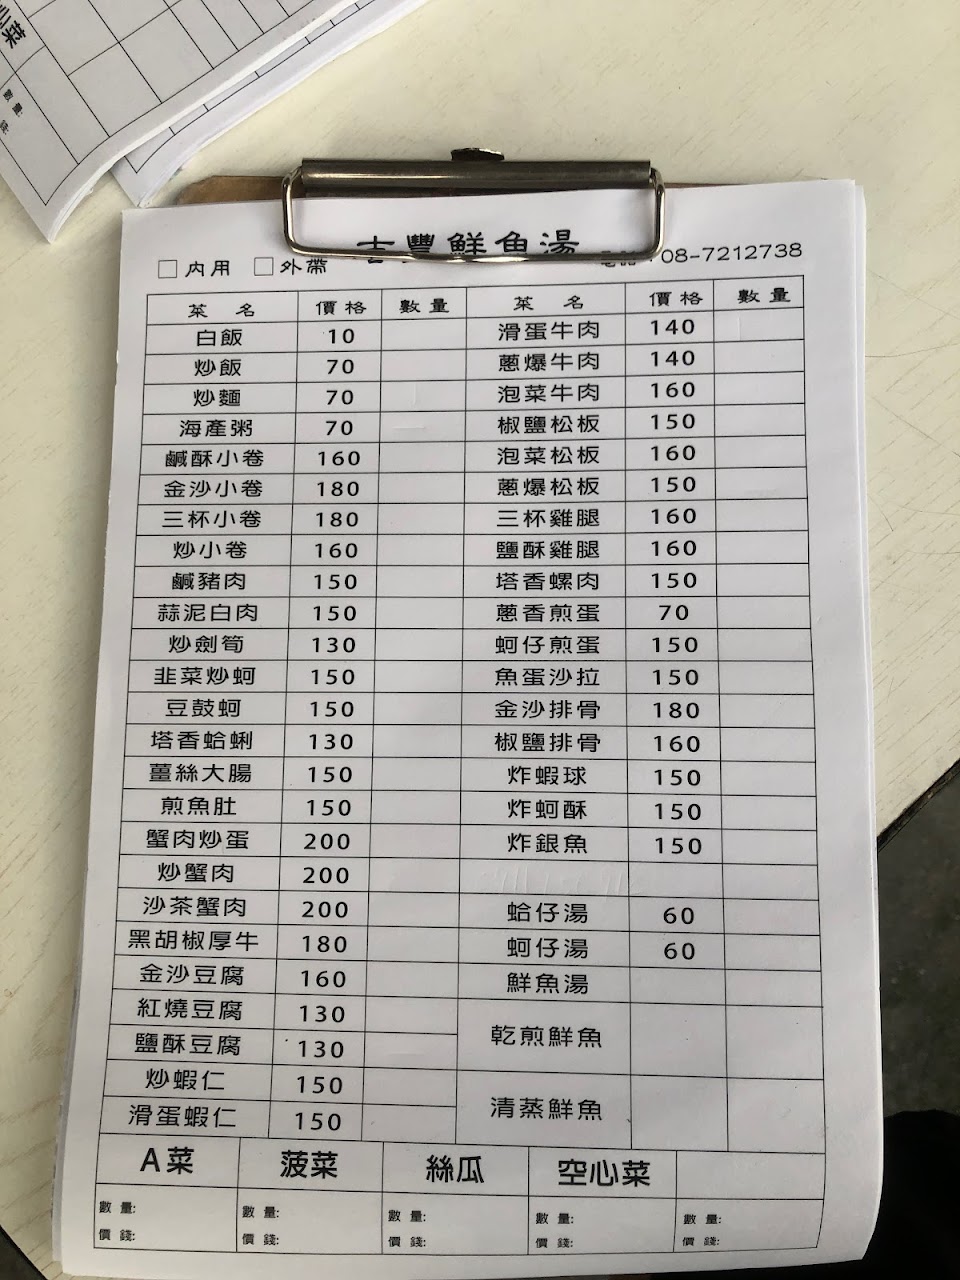 菜
數量:
錢:
吉豐鮮魚湯
□內用 □外帶 電話:08-7212738
菜 名 價格 數量 菜 名 價格 數量
白飯 10 滑蛋牛肉 140
炒飯 70 蔥爆牛肉 140
炒麵 70 泡菜牛肉 160
海產粥 70 椒鹽松板 150
鹹酥小卷 160 泡菜松板 160
金沙小卷 180 蔥爆松板 150
三杯小卷 180 三杯雞腿 160
炒小卷 160 鹽酥雞腿 160
鹹豬肉 150 塔香螺肉 150
蒜泥白肉 150 蔥香煎蛋 70
炒劍筍 130 蚵仔煎蛋 150
韭菜炒蚵 150 魚蛋沙拉 150
豆鼓蚵 150 金沙排骨 180
塔香蛤蜊 130 椒鹽排骨 160
薑絲大腸 150 炸蝦球 150
煎魚肚 150 炸蚵酥 150
蟹肉炒蛋 200 炸銀魚 150
炒蟹肉 200
沙茶蟹肉 200 蛤仔湯 60
黑胡椒厚牛 180 蚵仔湯 60
金沙豆腐 160 鮮魚湯
紅燒豆腐 130 乾煎鮮魚
鹽酥豆腐 130
炒蝦仁 150 清蒸鮮魚
滑蛋蝦仁 150
A菜 菠菜 絲瓜 空心菜
數量: 數量: 數量: 數量: 數量:
價錢: 價錢: 價錢: 價錢: 價錢: